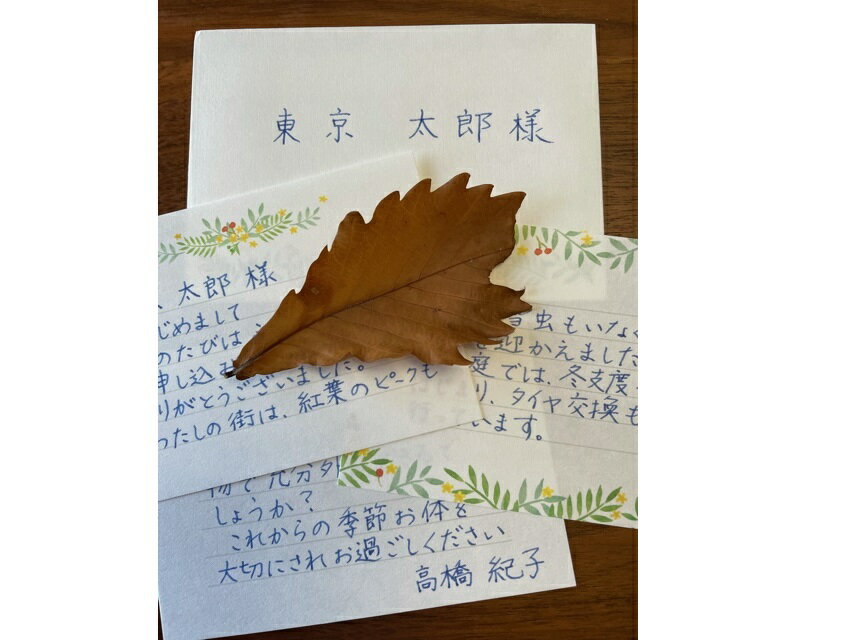 東京 太郎様
太郎様
じめまして
のたびは
申し込
りがとうございました。
わたしの街は、紅葉のピークも
虫もいなく
迎かえました
庭では、冬支度
り、タイヤ交換も
います。
しょうか?
これからの季節お体を
大切にされお過ごしください
高橋 紀子